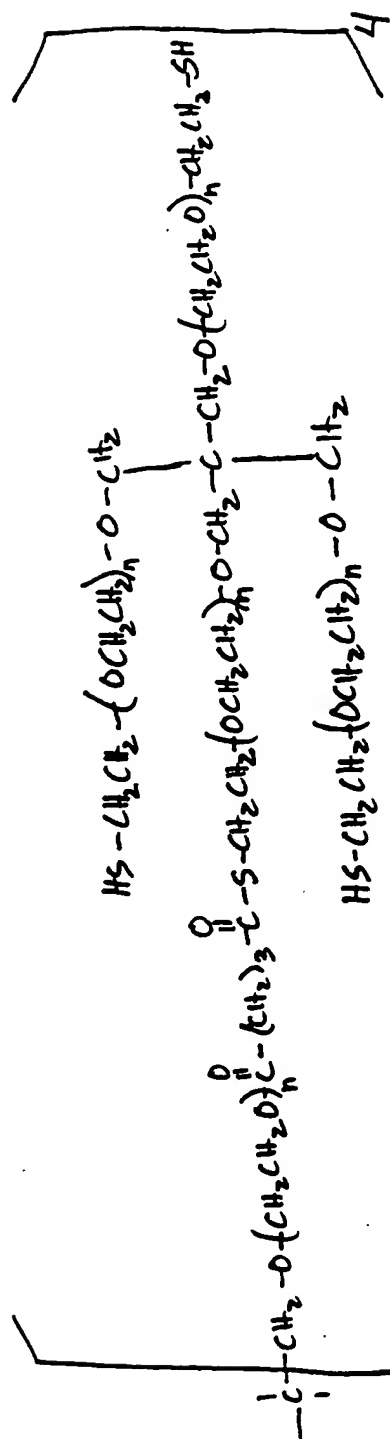 HS-CH2CH2-(OCH2CH2)n-O-CH2
-C-CH2-O-(CH2CH2O)n-C(=O)-(CH2)3-C(=O)-S-CH2CH2-(OCH2CH2)m-O-CH2-C-CH2-O-(CH2CH2O)n-CH2CH2-SH
HS-CH2CH2-(OCH2CH2)n-O-CH2
4